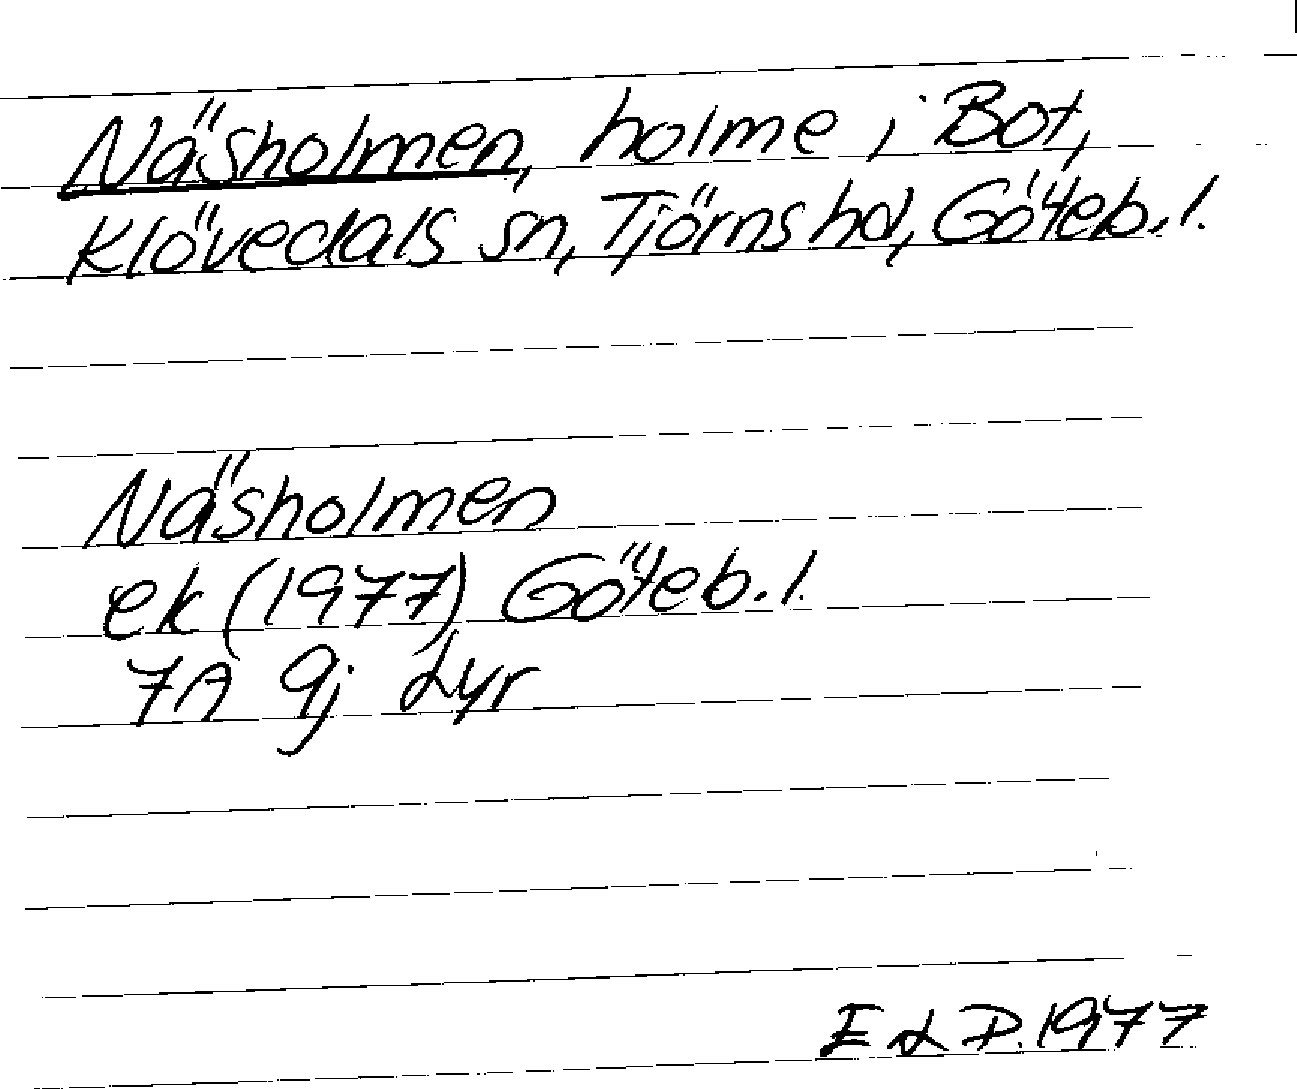 Näsholmen, holme i Bot,
Klövedals sn, Tjörns hd, Göteb. l.
Näsholmen
ek (1977) Göteb. l.
7A 9j Lyr
ELD. 1977